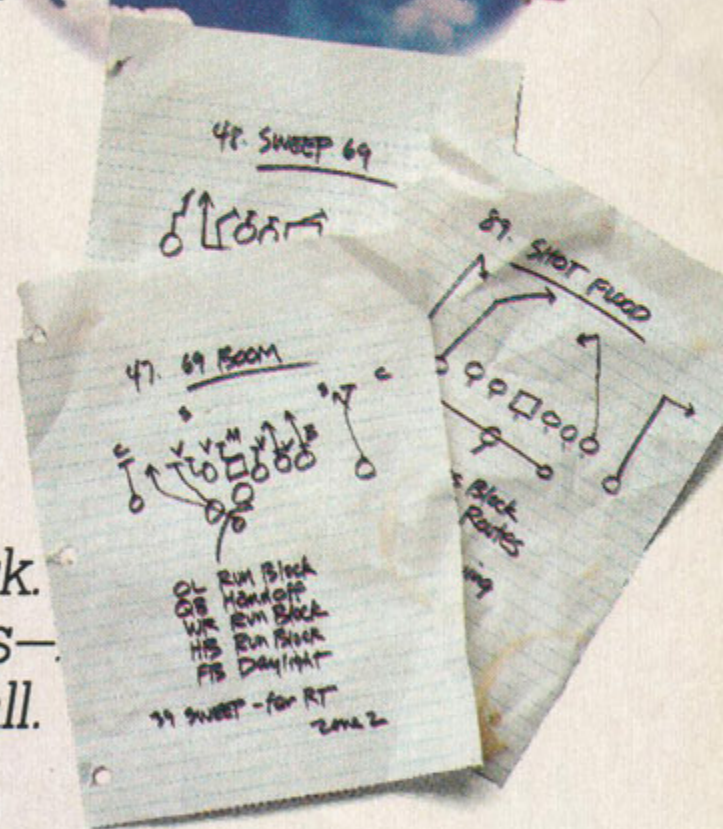 48. SWEEP 69
89. SHOT FLOOD
Block
Routes
47. 69 BOOM
C
S
S
C
C
V
V
M
V
V
B
OL Run Block
QB Handoff
WR Run Block
HB Run Block
FB Daylight
39 SWEEP - for RT
Zone 2
k.
s–
ll.